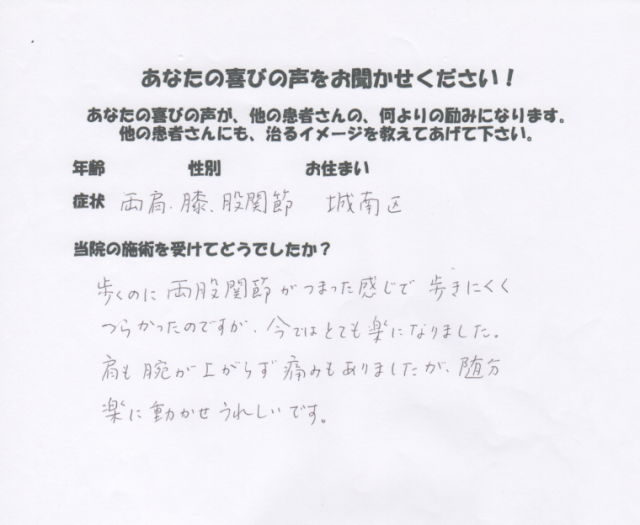 あなたの喜びの声をお聞かせください！
あなたの喜びの声が、他の患者さんの、何よりの励みになります。
他の患者さんにも、治るイメージを教えてあげて下さい。
年齢 性別 お住まい
症状 両肩、膝、股関節 城南区
当院の施術を受けてどうでしたか？
歩くのに両股関節がつまった感じで歩きにくく
つらかったのですが、今ではとても楽になりました。
肩も腕が上がらず痛みもありましたが、随分
楽に動かせうれしいです。